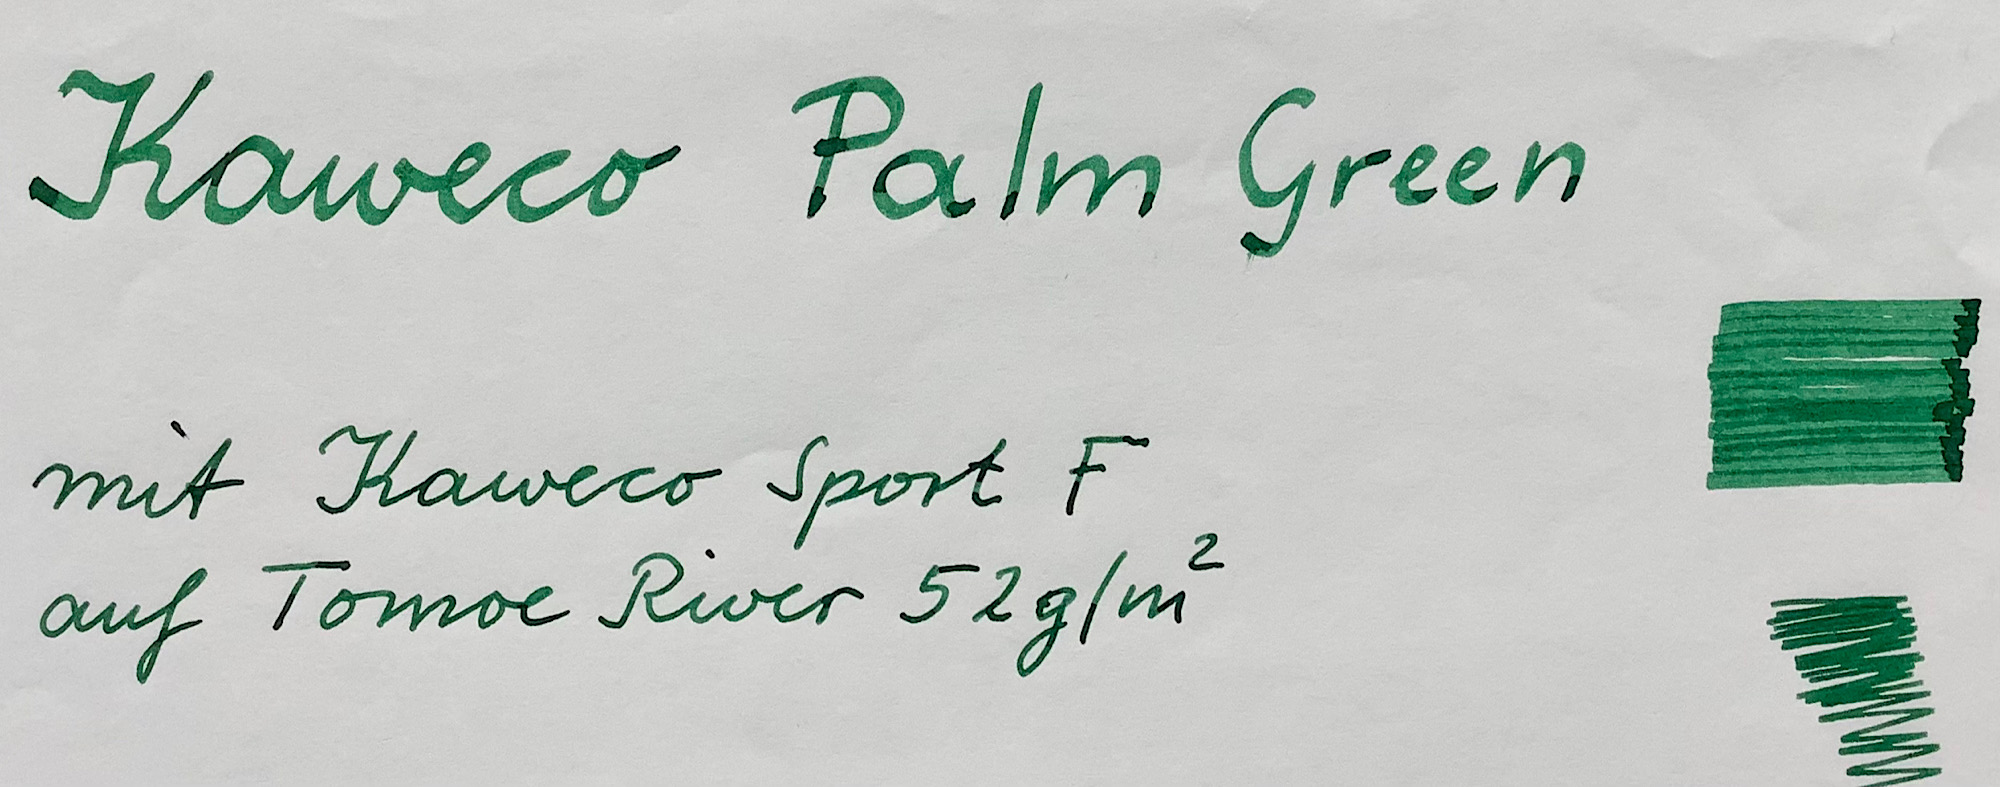 Kaweco Palm Green
mit Kaweco Sport F
auf Tomoe River 52g/m²